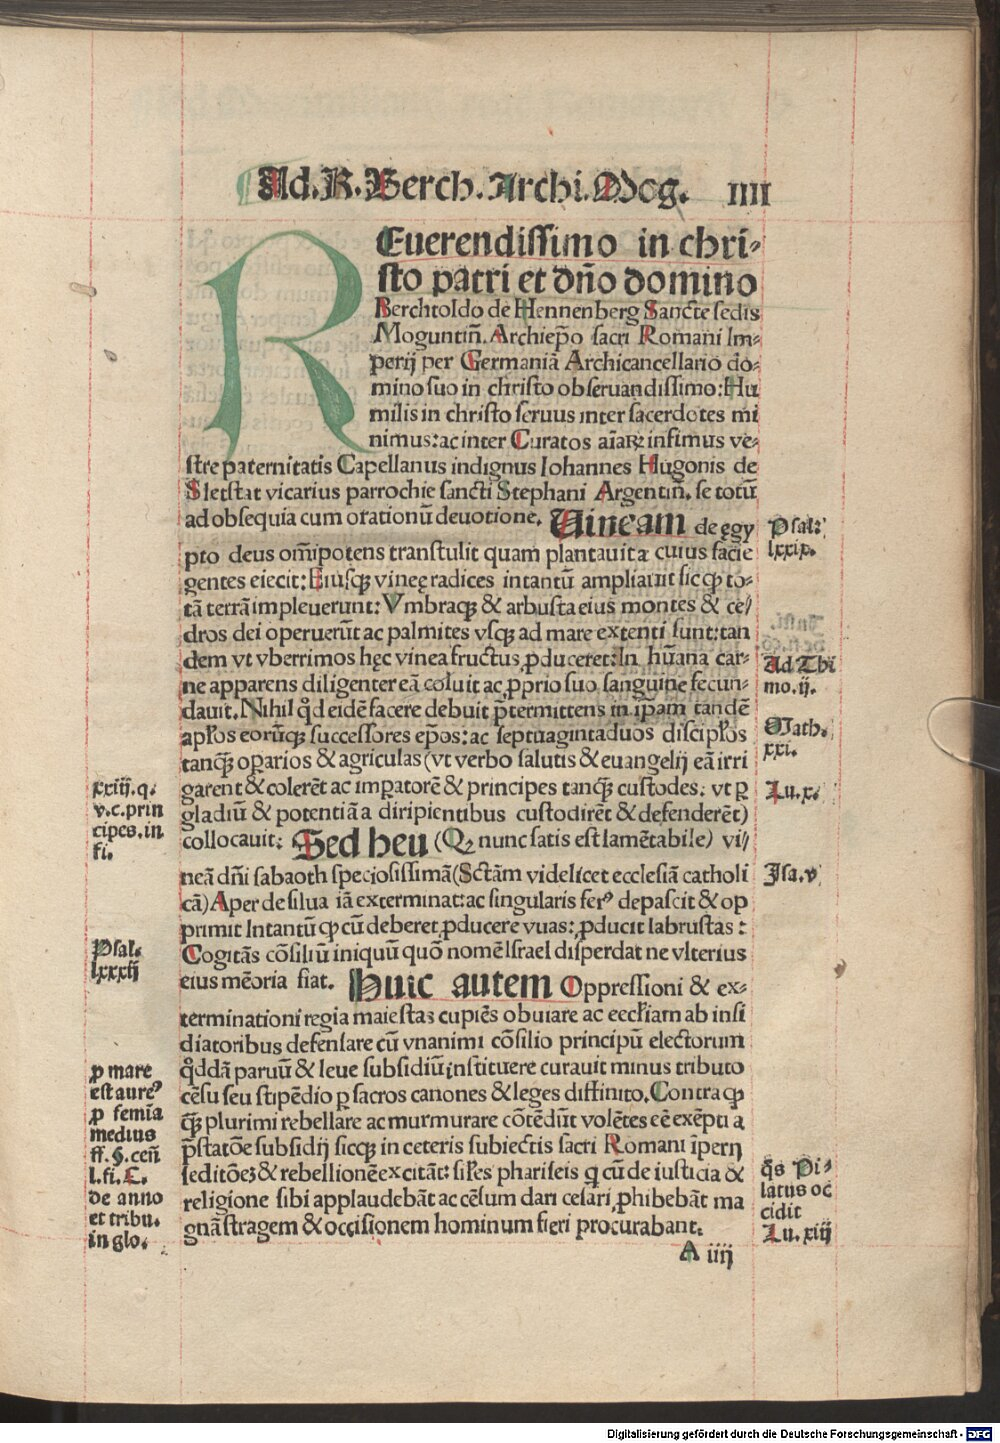 Ad.R.Berch.Archi.Mog. IIII
REuerendissimo in chri-
sto patri et dño domino
Berchtoldo de Hennenberg Sancte sedis
Moguntiñ. Archiep̄o sacri Romani Im-
perij per Germaniā Archicancellario do-
mino suo in christo obseruandissimo: Hu
milis in christo seruus inter sacerdotes mi
nimus: ac inter Curatos aīaꝝ infimus ve-
stre paternitatis Capellanus indignus Iohannes Hugonis de
Sletstat vicarius parrochie sancti Stephani Argentiñ. se totū
ad obsequia cum orationū deuotione. Uineam de ęgy
pto deus om̄ipotens transtulit quam plantauit a cuius facie
gentes eiecit: Eiusqꝫ vineę radices intantū ampliauit sic ꝙ to-
tā terrā impleuerunt: Vmbraqꝫ & arbusta eius montes & ce/
dros dei operuerūt ac palmites vsqꝫ ad mare extenti sunt: tan
dem vt vberrimos hęc vinea fructus ꝓduceret: In hūana car-
ne apparens diligenter eā coluit ac ꝓprio suo sanguine fecun-
dauit. Nihil q̊d eidē facere debuit p̄termittens in ip̄am tandē
apl̄os eorūqꝫ successores ep̄os: ac septuagintaduos discipl̄os
tanqꝫ̄ oꝑarios & agriculas (vt verbo salutis & euangelij eā irri
garent & colerēt ac imꝑatorē & principes tanqꝫ̄ custodes: vt ꝑ
gladiū & potentiā a diripientibus custodirēt & defenderēt)
collocauit: Sed heu (Qꝫ nunc satis est lamētabile) vi/
neā dñi sabaoth speciosissimā (Sctām videlicet ecclesiā catholi
cā) Aper de silua iā exterminat: ac singularis ferꝰ depascit & op
primit Intantū ꝙ cū deberet ꝓducere vuas: ꝓducit labrustas:
Cogitās cōsiliū iniquū quō nomē Israel disperdat ne vlterius
eius mēoria fiat. Huic autem Oppressioni & ex-
terminationi regia maiestas cupiēs obuiare ac eccl̄iam ab insi
diatoribus defensare cū vnanimi cōsilio principū electorum
q̊ddā paruū & leue subsidiū instituere curauit minus tributo
cēsu seu stipēdio ꝑ sacros canones & leges diffinito. Contra ꝙ
qꝫ̄ plurimi rebellare ac murmurare cōtēdūt volētes eē exēpti a
p̄statōe subsidij sicqꝫ in ceteris subiectis sacri Romani īperij
seditōeꝫ & rebellionē excitāt: sil̄es phariseis q̨ cū de iusticia &
religione sibi applaudebāt ac cēsum dari cesari ꝓhibebāt ma
gnā stragem & occisionem hominum fieri procurabant.
A iiij
Psal:
lxxix.
Ad Thi
mo.ij.
Math.
xxi.
Lu.x.
Isa.v
q̄s Pi-
latus oc
cidit
Lu. xiij
xxiij.q.
v.c.prin
cipes.in
fi.
Psal.
lxxxij
ꝓ mare
est aureꝰ
ꝓ femīa
medius
ff.§.ceñ
l.fi.C.
de anno
et tribu.
in glo.
Digitalisierung gefördert durch die Deutsche Forschungsgemeinschaft - DFG